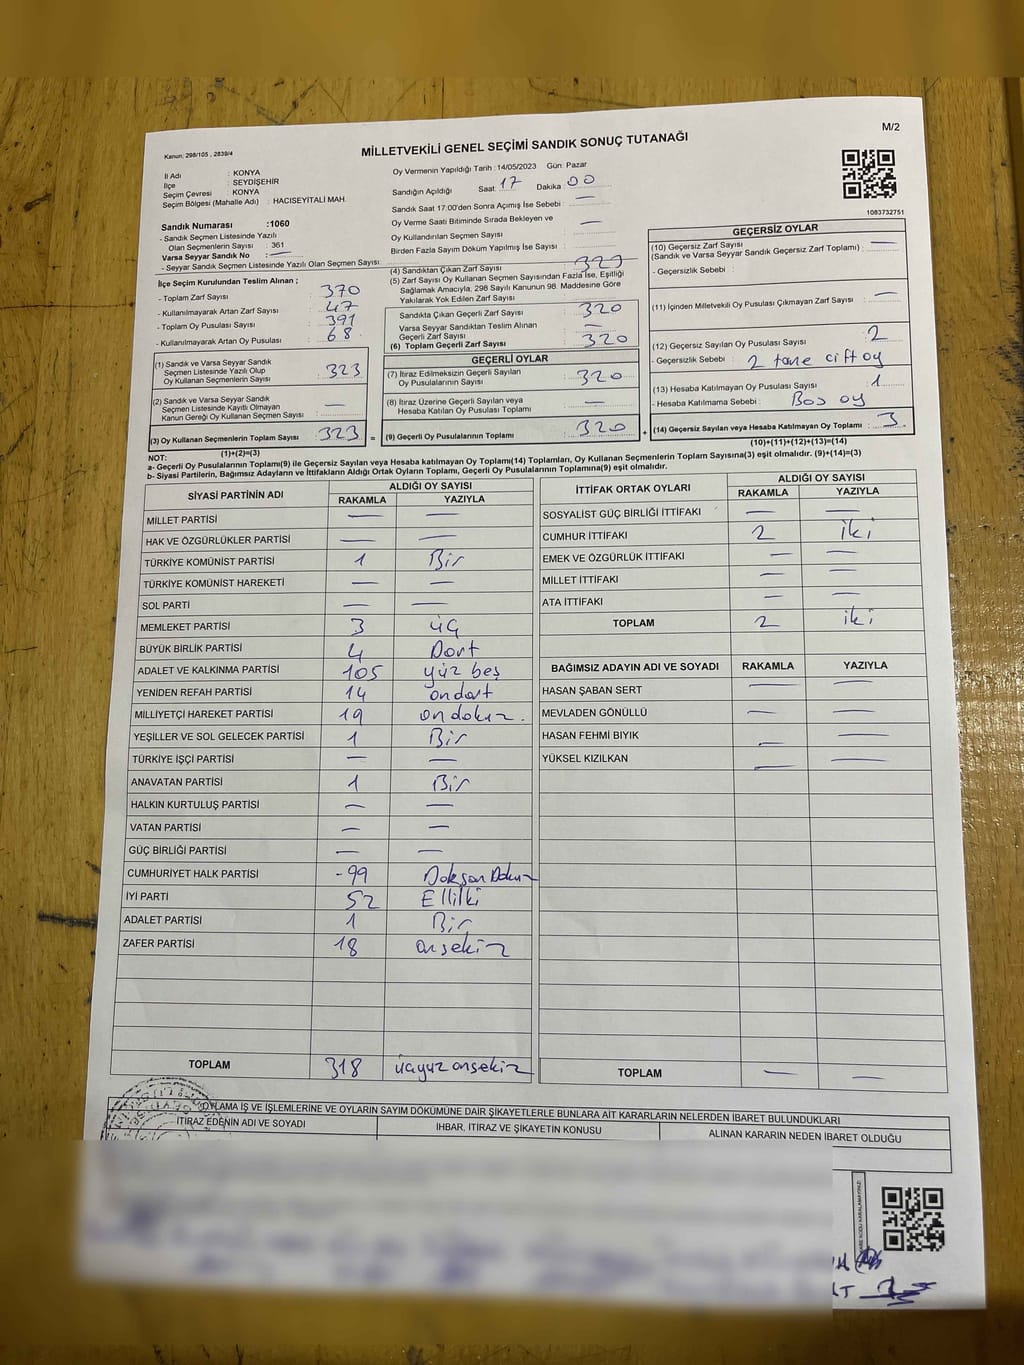 M/2
Kanun: 298/105 , 2839/4
MİLLETVEKİLİ GENEL SEÇİMİ SANDIK SONUÇ TUTANAĞI
İl Adı : KONYA
İlçe : SEYDİŞEHİR
Seçim Çevresi : KONYA
Seçim Bölgesi (Mahalle Adı) : HACISEYİTALİ MAH.
Oy Vermenin Yapıldığı Tarih : 14/05/2023 Gün: Pazar
Sandığın Açıldığı Saat: 17 Dakika: 00
Sandık Saat 17:00'den Sonra Açımış İse Sebebi : —
Oy Verme Saati Bitiminde Sırada Bekleyen ve
Oy Kullandırılan Seçmen Sayısı : —
Birden Fazla Sayım Döküm Yapılmış İse Sayısı :
1083732751
Sandık Numarası :1060
- Sandık Seçmen Listesinde Yazılı
Olan Seçmenlerin Sayısı : 361
Varsa Seyyar Sandık No : —
- Seyyar Sandık Seçmen Listesinde Yazılı Olan Seçmen Sayısı:
İlçe Seçim Kurulundan Teslim Alınan ;
- Toplam Zarf Sayısı : 370
- Kullanılmayarak Artan Zarf Sayısı : 47
- Toplam Oy Pusulası Sayısı : 391
- Kullanılmayarak Artan Oy Pusulası : 68
(1) Sandık ve Varsa Seyyar Sandık
Seçmen Listesinde Yazılı Olup
Oy Kullanan Seçmenlerin Sayısı : 323
(2) Sandık ve Varsa Seyyar Sandık
Seçmen Listesinde Kayıtlı Olmayan
Kanun Gereği Oy Kullanan Seçmen Sayısı : —
(3) Oy Kullanan Seçmenlerin Toplam Sayısı : 323 =
(1)+(2)=(3)
(4) Sandıktan Çıkan Zarf Sayısı :
(5) Zarf Sayısı Oy Kullanan Seçmen Sayısından Fazla İse, Eşitliği
Sağlamak Amacıyla, 298 Sayılı Kanunun 98. Maddesine Göre
Yakılarak Yok Edilen Zarf Sayısı :
Sandıkta Çıkan Geçerli Zarf Sayısı : 320
Varsa Seyyar Sandıktan Teslim Alınan
Geçerli Zarf Sayısı : —
(6) Toplam Geçerli Zarf Sayısı : 320
GEÇERLİ OYLAR
(7) İtiraz Edilmeksizin Geçerli Sayılan
Oy Pusulalarının Sayısı : 320
(8) İtiraz Üzerine Geçerli Sayılan veya
Hesaba Katılan Oy Pusulası Toplamı : —
(9) Geçerli Oy Pusulalarının Toplamı : 320 +
GEÇERSİZ OYLAR
(10) Geçersiz Zarf Sayısı : —
(Sandık ve Varsa Seyyar Sandık Geçersiz Zarf Toplamı)
- Geçersizlik Sebebi :
(11) İçinden Milletvekili Oy Pusulası Çıkmayan Zarf Sayısı : —
(12) Geçersiz Sayılan Oy Pusulası Sayısı : 2
- Geçersizlik Sebebi : 2 tane çift oy
(13) Hesaba Katılmayan Oy Pusulası Sayısı : 1
- Hesaba Katılmama Sebebi : Boş oy
(14) Geçersiz Sayılan veya Hesaba Katılmayan Oy Toplamı : 3
(10)+(11)+(12)+(13)=(14)
NOT:
a- Geçerli Oy Pusulalarının Toplamı(9) ile Geçersiz Sayılan veya Hesaba katılmayan Oy Toplamı(14) Toplamları, Oy Kullanan Seçmenlerin Toplam Sayısına(3) eşit olmalıdır. (9)+(14)=(3)
b- Siyasi Partilerin, Bağımsız Adayların ve İttifakların Aldığı Ortak Oyların Toplamı, Geçerli Oy Pusulalarının Toplamına(9) eşit olmalıdır.
SİYASİ PARTİNİN ADI ALDIĞI OY SAYISI
RAKAMLA YAZIYLA
MİLLET PARTİSİ — —
HAK VE ÖZGÜRLÜKLER PARTİSİ — —
TÜRKİYE KOMÜNİST PARTİSİ 1 Bir
TÜRKİYE KOMÜNİST HAREKETİ — —
SOL PARTİ — —
MEMLEKET PARTİSİ 3 üç
BÜYÜK BİRLİK PARTİSİ 4 Dört
ADALET VE KALKINMA PARTİSİ 105 yüz beş
YENİDEN REFAH PARTİSİ 14 ondört
MİLLİYETÇİ HAREKET PARTİSİ 19 ondokuz.
YEŞİLLER VE SOL GELECEK PARTİSİ 1 Bir
TÜRKİYE İŞÇİ PARTİSİ — —
ANAVATAN PARTİSİ 1 Bir
HALKIN KURTULUŞ PARTİSİ — —
VATAN PARTİSİ — —
GÜÇ BİRLİĞİ PARTİSİ — —
CUMHURİYET HALK PARTİSİ -99 Doksan Dokuz
İYİ PARTİ 52 Elliİki
ADALET PARTİSİ 1 Bir
ZAFER PARTİSİ 18 onsekiz
TOPLAM 318 üçyüzonsekiz
İTTİFAK ORTAK OYLARI ALDIĞI OY SAYISI
RAKAMLA YAZIYLA
SOSYALİST GÜÇ BİRLİĞİ İTTİFAKI — —
CUMHUR İTTİFAKI 2 iki
EMEK VE ÖZGÜRLÜK İTTİFAKI — —
MİLLET İTTİFAKI — —
ATA İTTİFAKI — —
TOPLAM 2 iki
BAĞIMSIZ ADAYIN ADI VE SOYADI RAKAMLA YAZIYLA
HASAN ŞABAN SERT — —
MEVLADEN GÖNÜLLÜ — —
HASAN FEHMİ BIYIK — —
YÜKSEL KIZILKAN — —
TOPLAM — —
OYLAMA İŞ VE İŞLEMLERİNE VE OYLARIN SAYIM DÖKÜMÜNE DAİR ŞİKAYETLERLE BUNLARA AİT KARARLARIN NELERDEN İBARET BULUNDUKLARI
İTİRAZ EDENİN ADI VE SOYADI İHBAR, İTİRAZ VE ŞİKAYETİN KONUSU ALINAN KARARIN NEDEN İBARET OLDUĞU